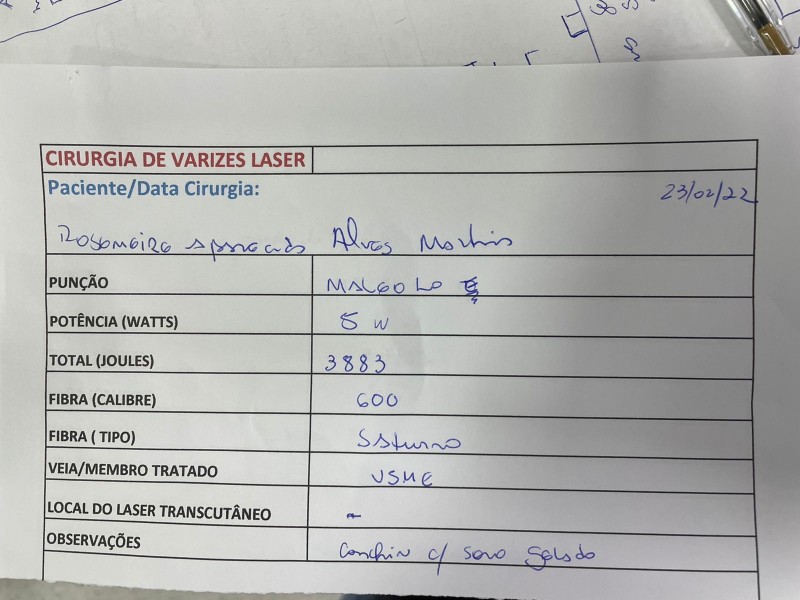 CIRURGIA DE VARIZES LASER
Paciente/Data Cirurgia: 23/02/22
Rosemeire Aparecida Alves Martins
PUNÇÃO MALEOLO
POTÊNCIA (WATTS) 5 W
TOTAL (JOULES) 3883
FIBRA (CALIBRE) 600
FIBRA ( TIPO) Saturno
VEIA/MEMBRO TRATADO VSME
LOCAL DO LASER TRANSCUTÂNEO -
OBSERVAÇÕES c/ soro gelado